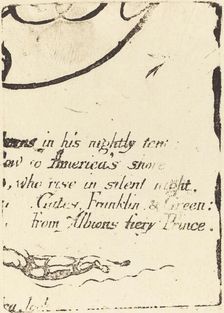 in his nightly ten
ow to America's shore
, who rise in silent night.
Gates, Franklin, & Green;
from Albions fiery Prince.